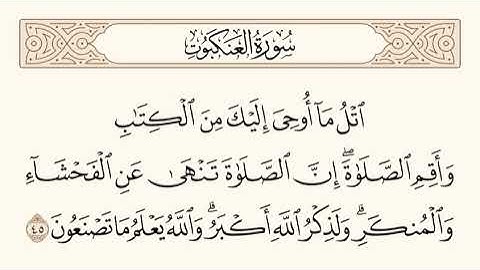 سُورَةُ الْعَنكَبُوتِ
ٱتْلُ مَآ أُوحِىَ إِلَيْكَ مِنَ ٱلْكِتَٰبِ
وَأَقِمِ ٱلصَّلَوٰةَ ۖ إِنَّ ٱلصَّلَوٰةَ تَنْهَىٰ عَنِ ٱلْفَحْشَآءِ
وَٱلْمُنكَرِ ۗ وَلَذِكْرُ ٱللَّهِ أَكْبَرُ ۗ وَٱللَّهُ يَعْلَمُ مَا تَصْنَعُونَ ٤٥